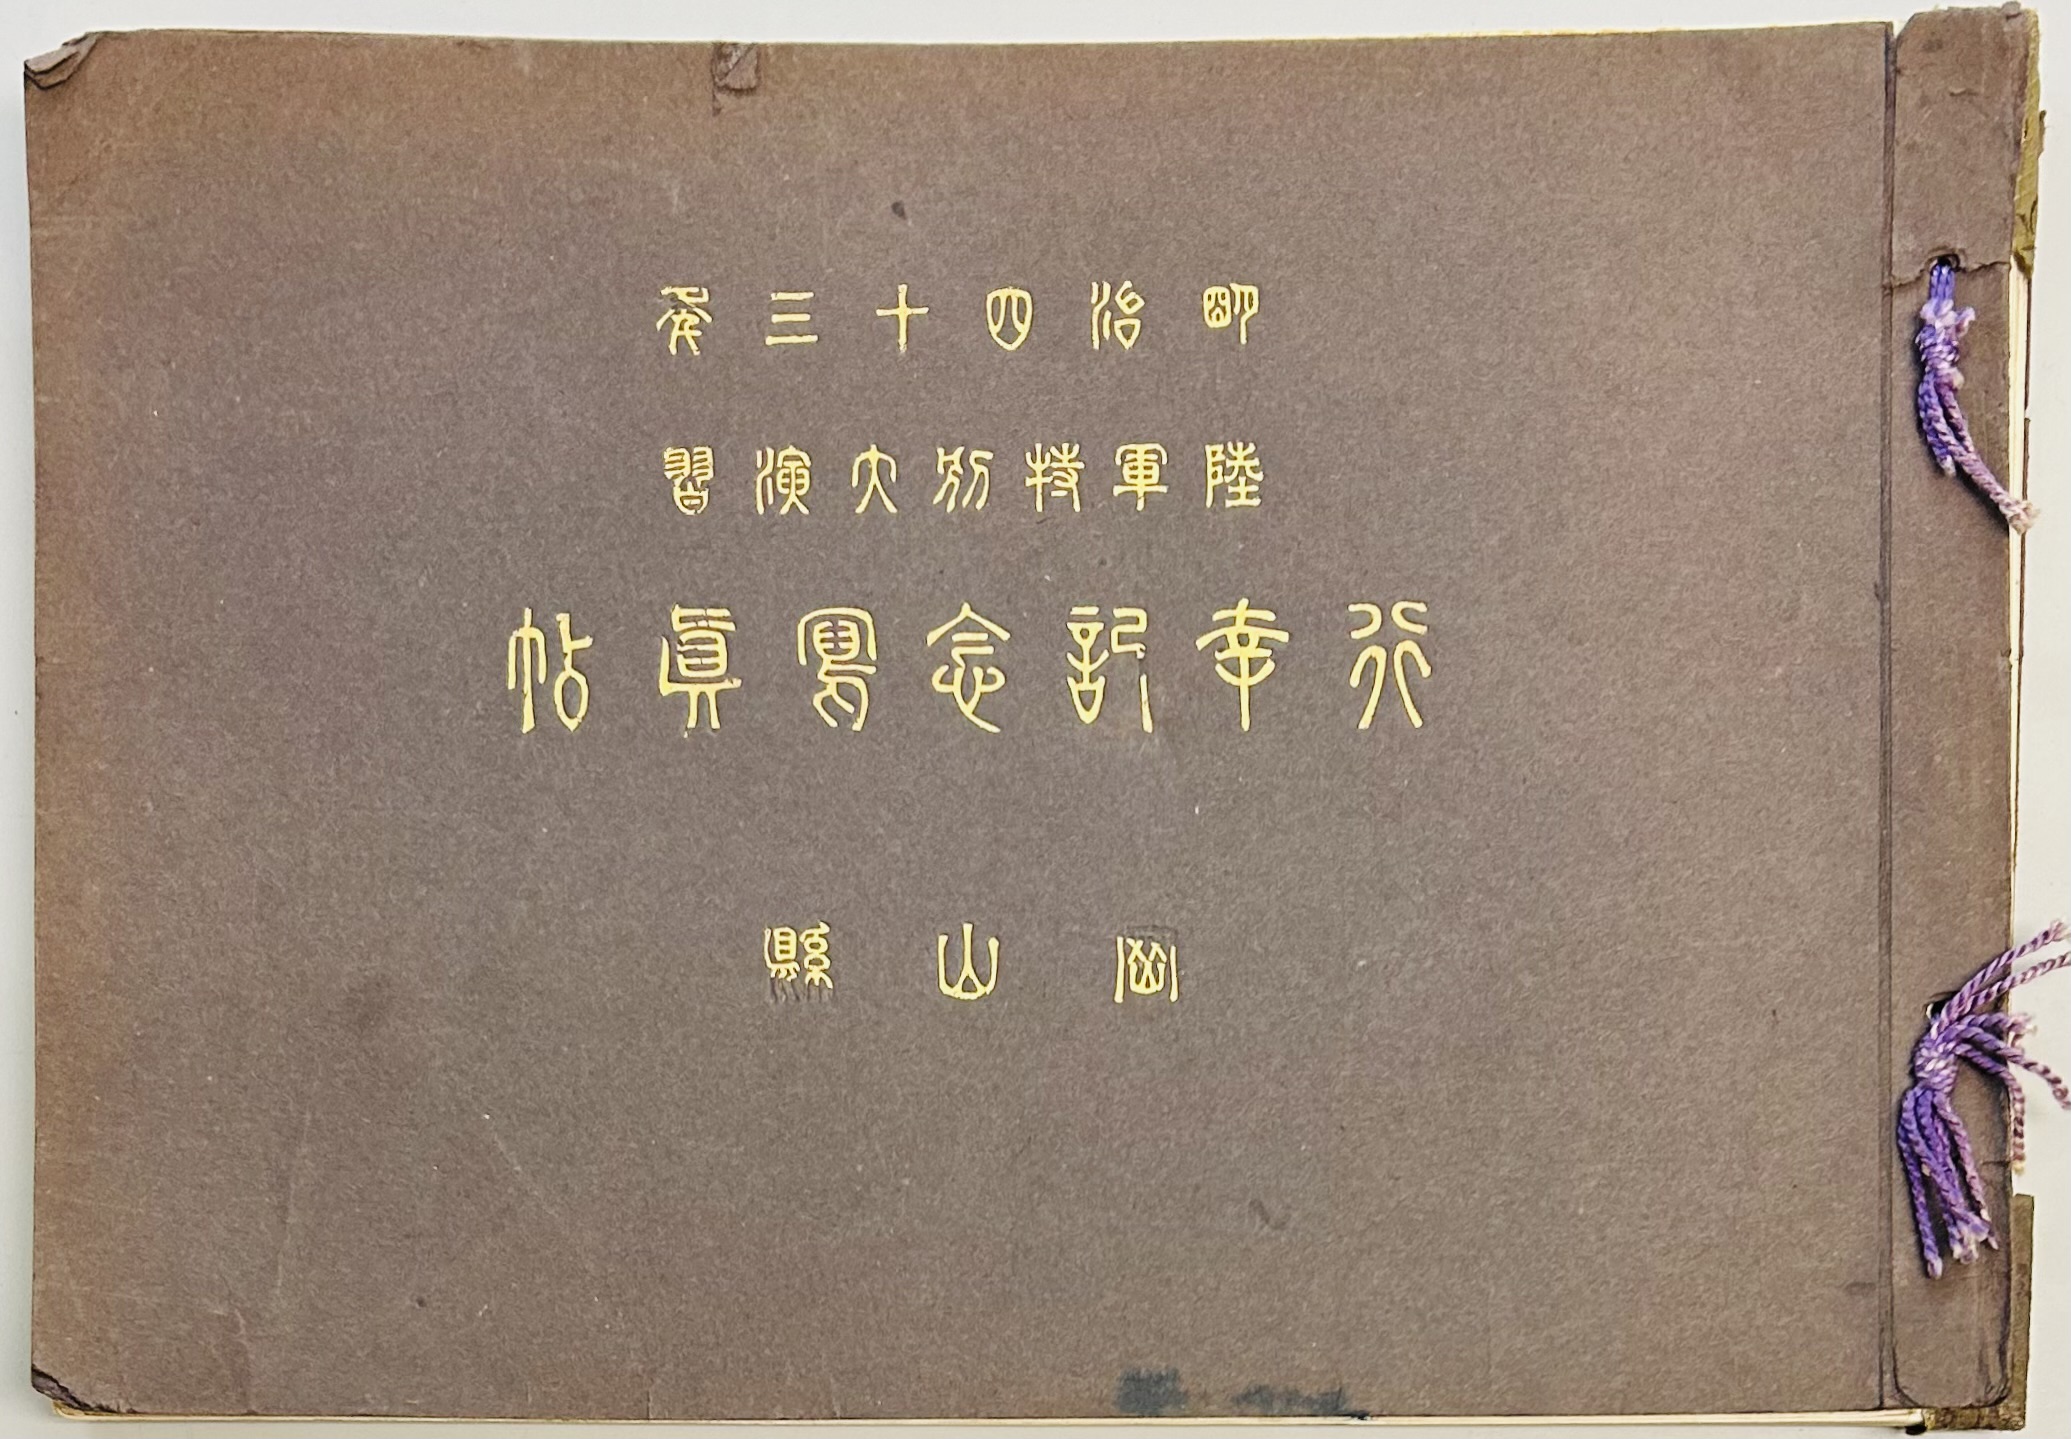 明治四十三年
陸軍特別大演習
行幸記念寫眞帖
岡山縣